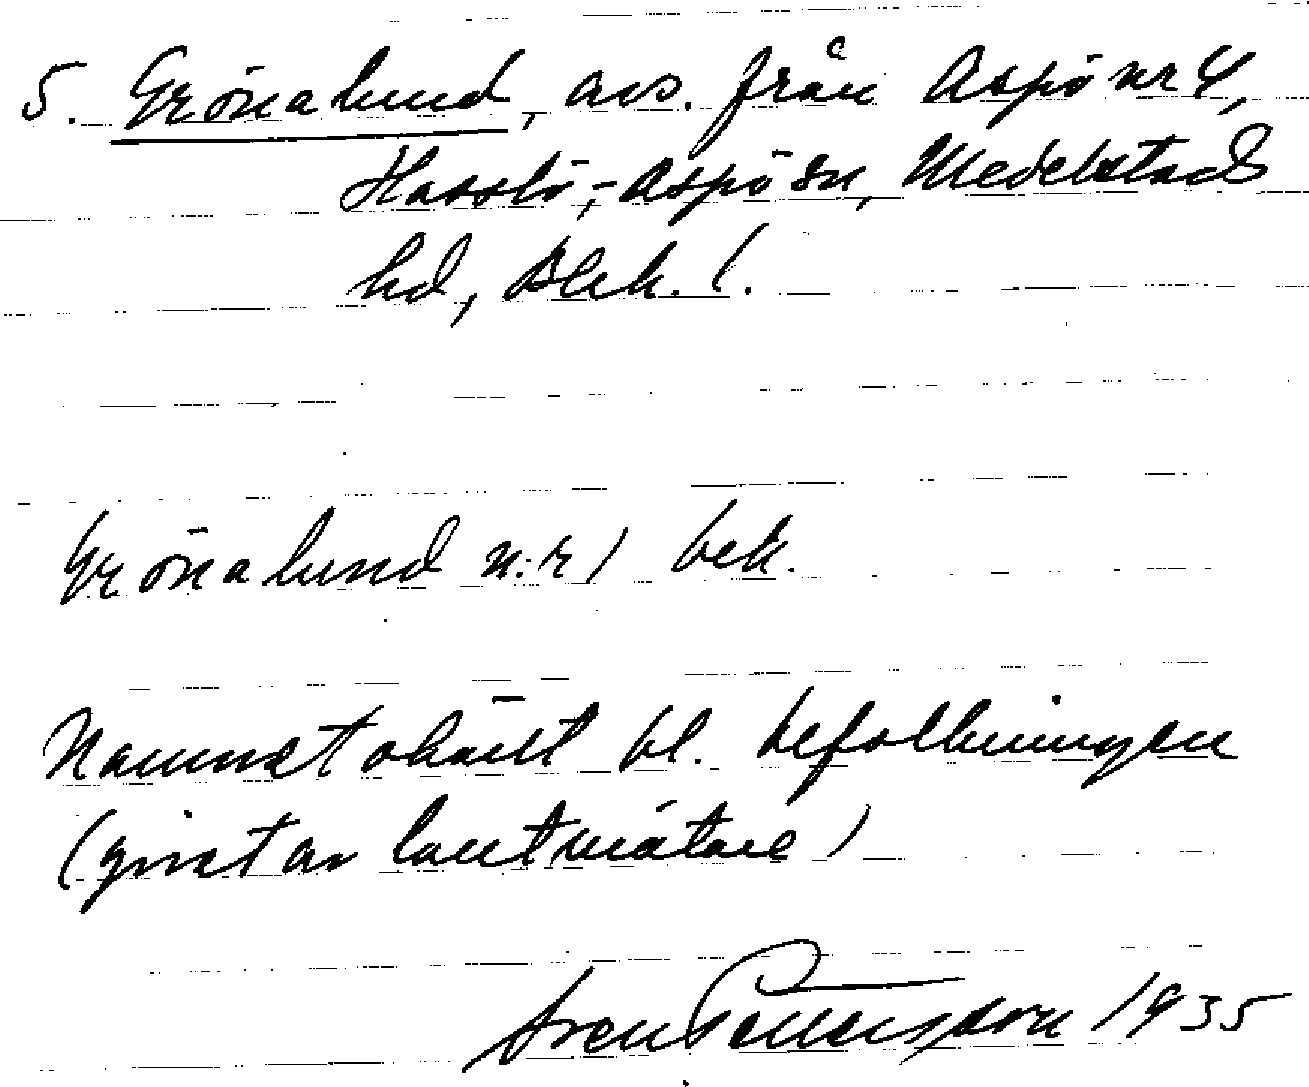 5. Grönalund, avs. från Aspö nr 4,
Hasslö-, Aspö sn, Medelstads
hd, Blek. l.
Grönalund n:r 1 bek.
Namnet okänt bl. befolkningen
(givet av lantmätare)
Sven Pettersson 1935